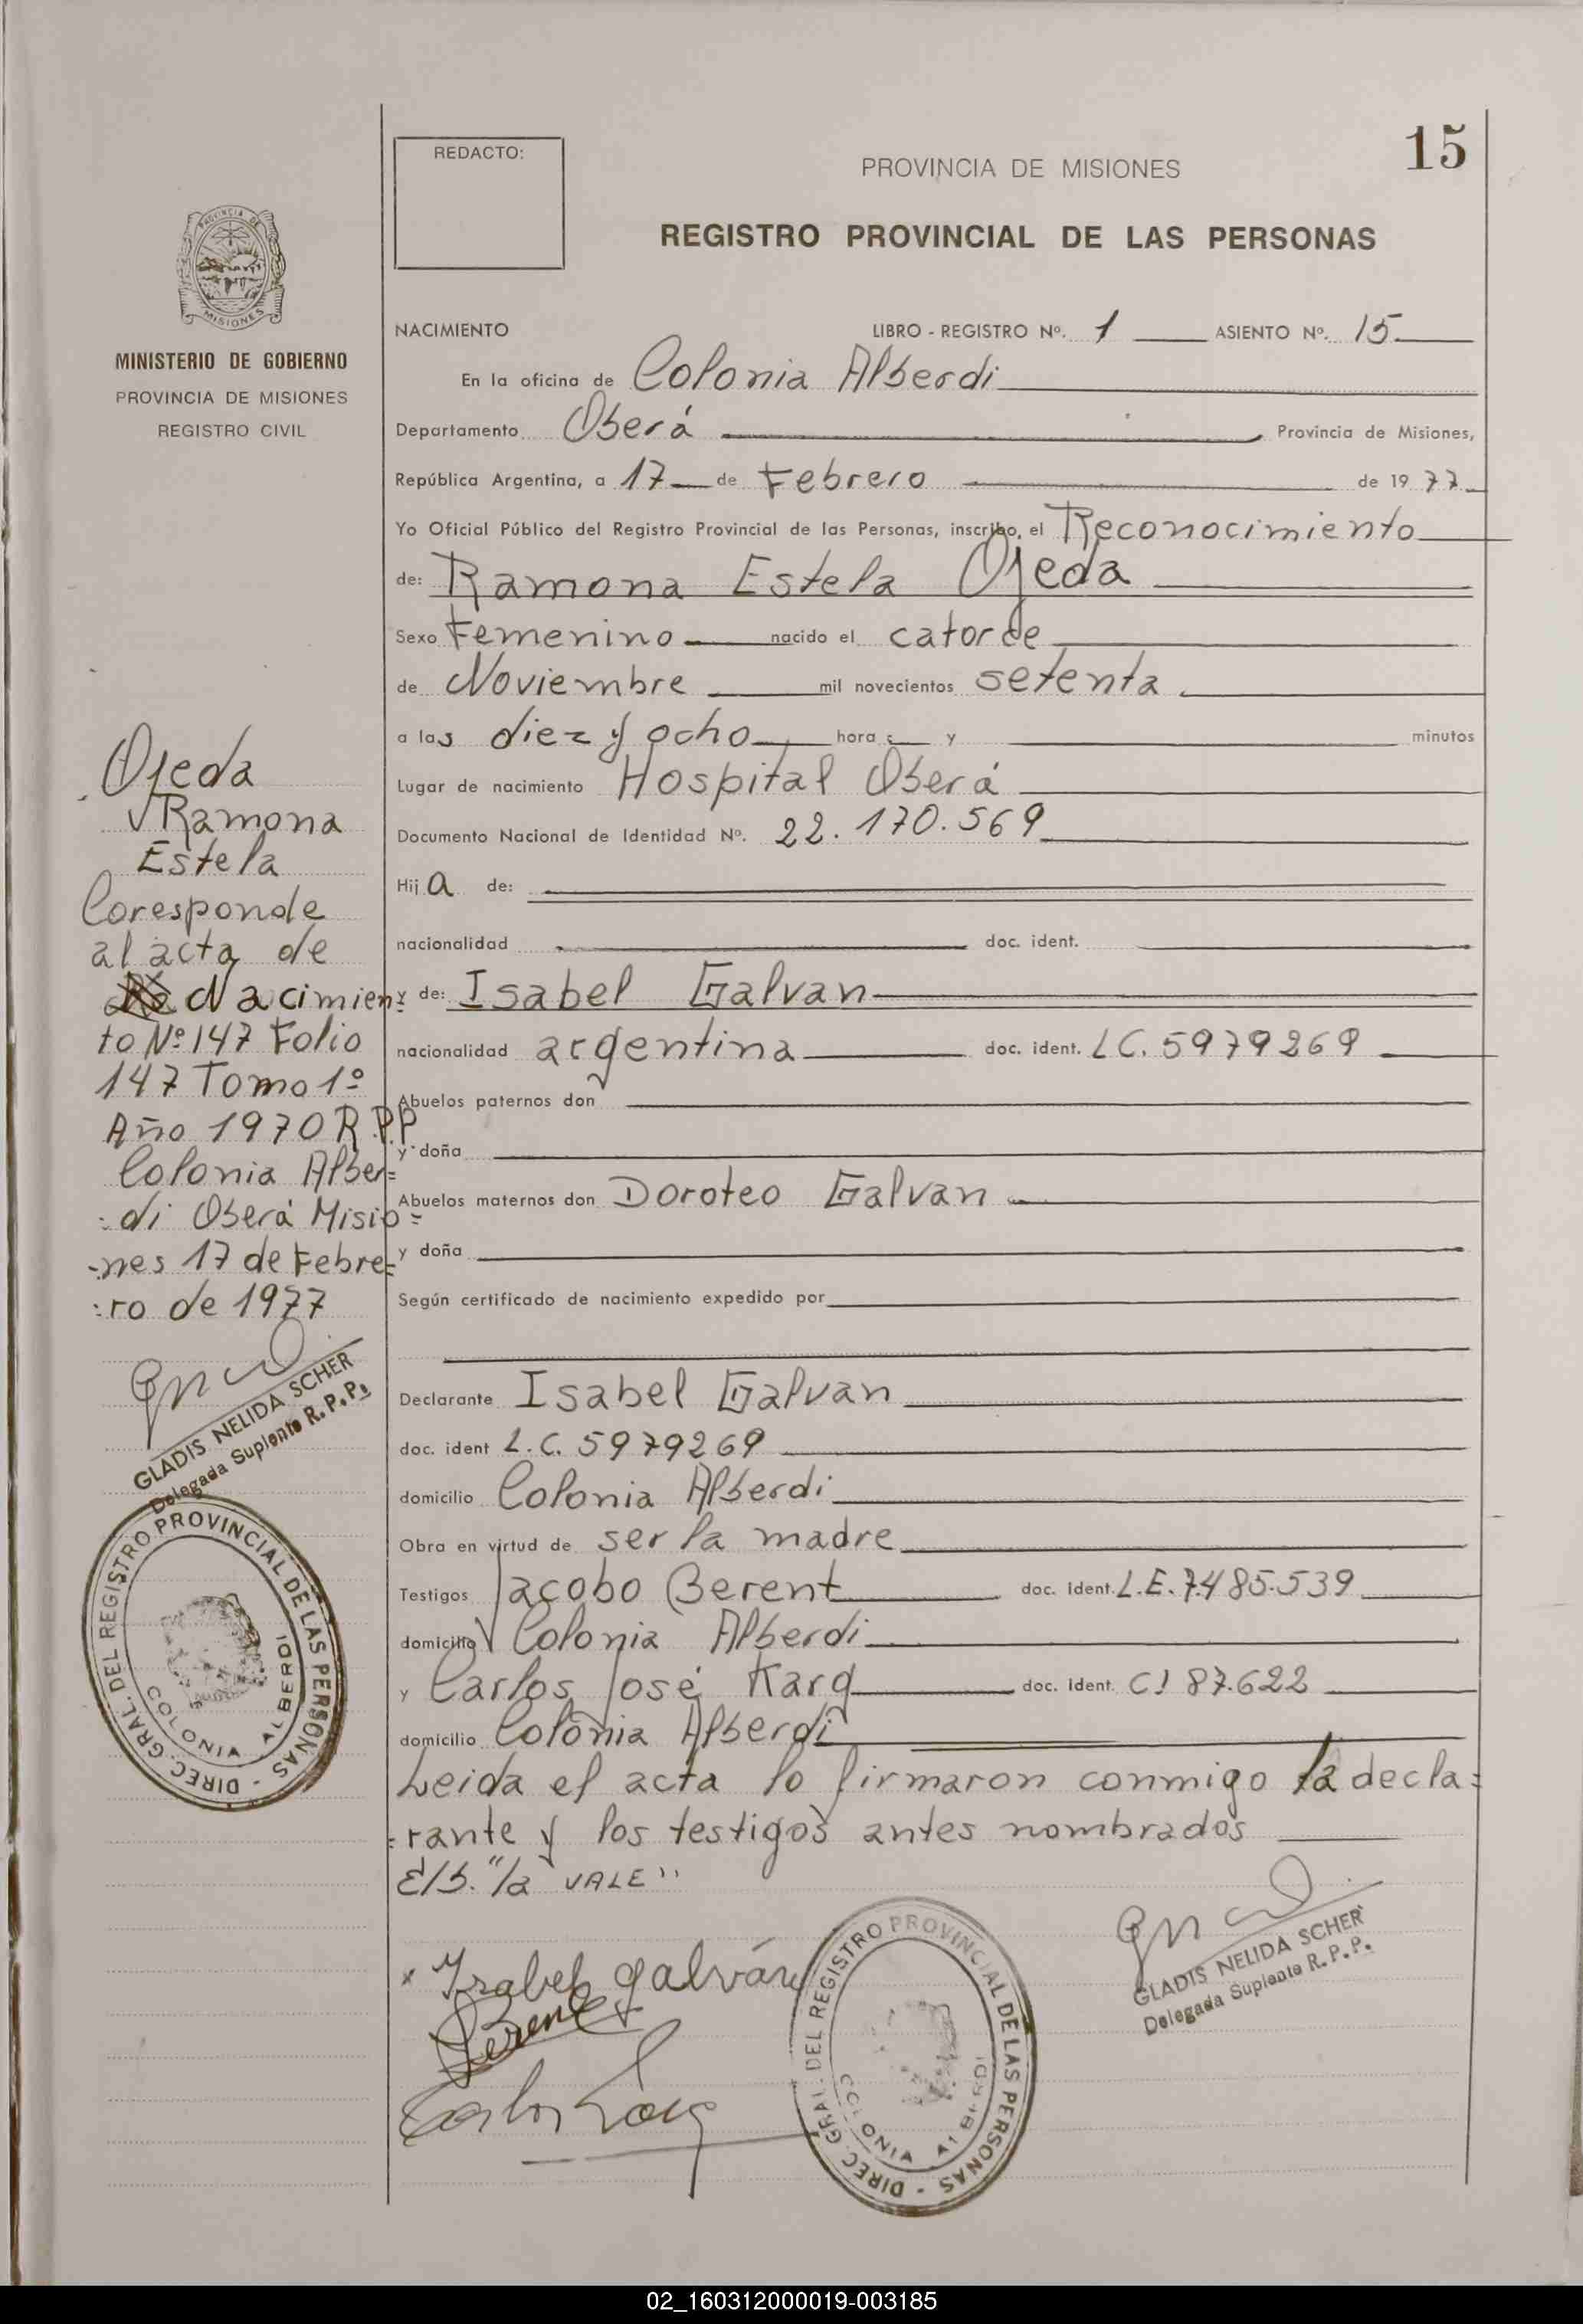 15
REDACTO:
PROVINCIA DE MISIONES
REGISTRO PROVINCIAL DE LAS PERSONAS
PROVINCIA DE
MISIONES
MINISTERIO DE GOBIERNO
PROVINCIA DE MISIONES
REGISTRO CIVIL
NACIMIENTO LIBRO - REGISTRO Nº. 1 ASIENTO Nº. 15
En la oficina de Colonia Alberdi
Departamento Oberá Provincia de Misiones,
República Argentina, a 17 de Febrero de 1977
Yo Oficial Público del Registro Provincial de las Personas, inscribo, el Reconocimiento
de: Ramona Estela Ojeda
Sexo Femenino nacido el catorce
de Noviembre mil novecientos setenta
a las diez y ocho hora s y minutos
Lugar de nacimiento Hospital Oberá
Documento Nacional de Identidad Nº. 22.170.569
Hija de:
nacionalidad doc. ident.
y de: Isabel Galvan
nacionalidad argentina doc. ident. LC. 5979269
Abuelos paternos don
y doña
Abuelos maternos don Doroteo Galvan
y doña
Según certificado de nacimiento expedido por
Declarante Isabel Galvan
doc. ident L.C. 5979269
domicilio Colonia Alberdi
Obra en virtud de ser la madre
Testigos Jacobo Berent doc. Ident. L.E. 7.485.539
domicilio Colonia Alberdi
y Carlos José Karg doc. Ident. CI 87.622
domicilio Colonia Alberdi
Leida el acta lo firmaron conmigo la decla=
=rante y los testigos antes nombrados
E/S. "la VALE"
Ojeda
Ramona
Estela
Coresponde
al acta de
Nacimien
to Nº 147 Folio
147 Tomo 1º
Año 1970 R.P.P
Colonia Alber=
di Oberá Misio=
-nes 17 de Febre=
:ro de 1977
GLADIS NELIDA SCHER
Delegada Suplente R.P.P.
DIREC. GRAL. DEL REGISTRO PROVINCIAL DE LAS PERSONAS -
COLONIA ALBERDI
x Isabel galván
Berent
GLADIS NELIDA SCHER
Delegada Suplente R.P.P.
DIREC. GRAL. DEL REGISTRO PROVINCIAL DE LAS PERSONAS -
COLONIA ALBERDI
Carlos Karg
02_160312000019-003185